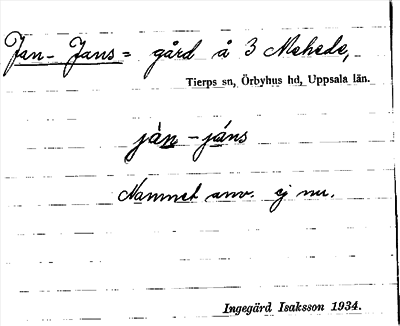 Jan-Jans = gård å 3 Mehede,
Tierps sn, Örbyhus hd, Uppsala län.
jàn-jáns
Namnet anv. ej nu.
Ingegärd Isaksson 1934.